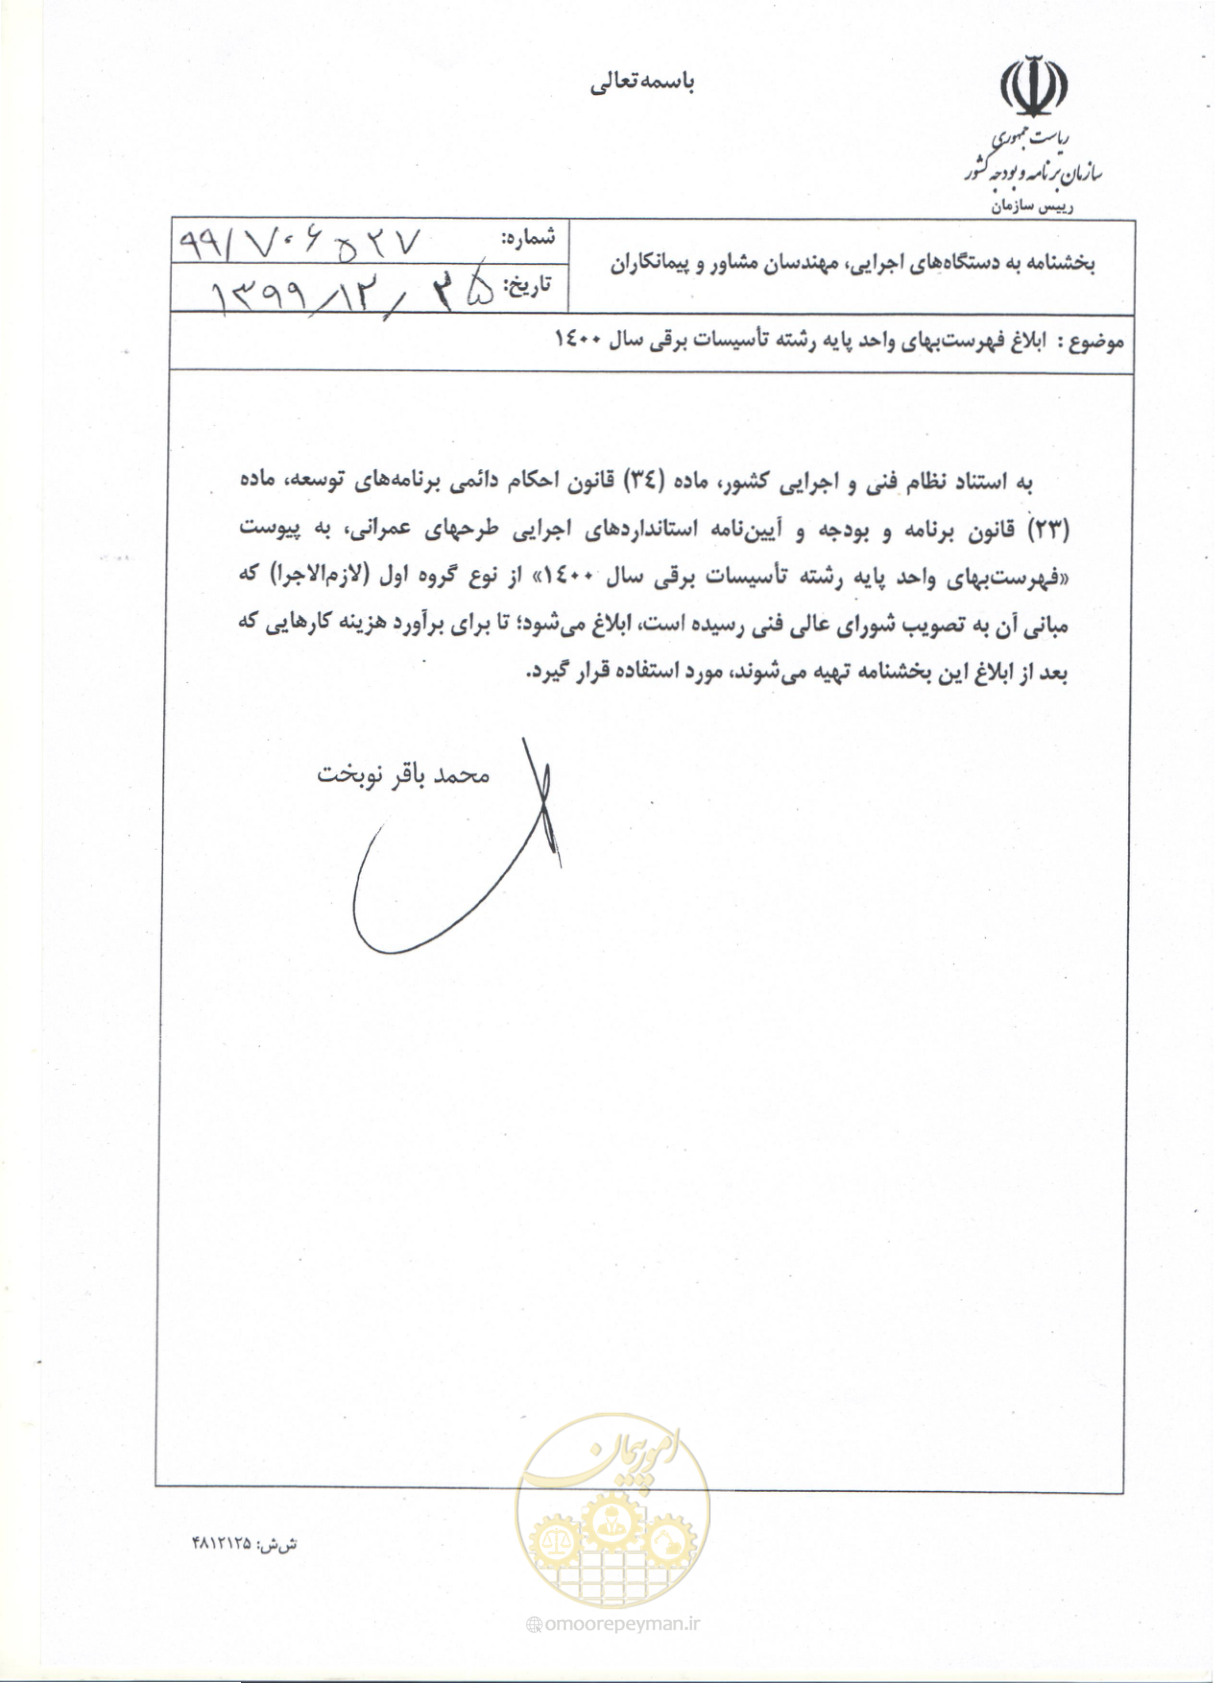 باسمه تعالی
ریاست جمهوری
سازمان برنامه و بودجه کشور
رییس سازمان
بخشنامه به دستگاه‌های اجرایی، مهندسان مشاور و پیمانکاران
شماره: ۹۹/۷۰۶۵۲۷
تاریخ: ۱۳۹۹/۱۲/۲۵
موضوع : ابلاغ فهرست‌بهای واحد پایه رشته تأسیسات برقی سال ١٤٠٠
به استناد نظام فنی و اجرایی کشور، ماده (٣٤) قانون احکام دائمی برنامه‌های توسعه، ماده
(٢٣) قانون برنامه و بودجه و آیین‌نامه استانداردهای اجرایی طرحهای عمرانی، به پیوست
«فهرست‌بهای واحد پایه رشته تأسیسات برقی سال ١٤٠٠» از نوع گروه اول (لازم‌الاجرا) که
مبانی آن به تصویب شورای عالی فنی رسیده است، ابلاغ می‌شود؛ تا برای برآورد هزینه کارهایی که
بعد از ابلاغ این بخشنامه تهیه می‌شوند، مورد استفاده قرار گیرد.
محمد باقر نوبخت
امور پیمان
ش‌ش: ۴۸۱۲۱۲۵
omoorepeyman.ir